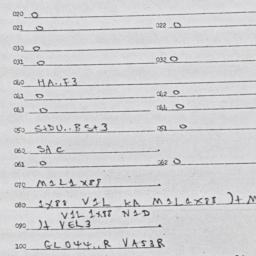 020 O
021 O 022 O
030 O
031 O 032 O
040 HA..F3
041 O 042 O
043 O 044 O
050 S+DU..BS+3 051 O
060 SAC
061 O 062 O
070 M1L1X88
080 1X88 V1L KA M1L1X88 )+ M
V1L1X88 N1D
090 )+ VEL3
100 GL044..R VAS3R